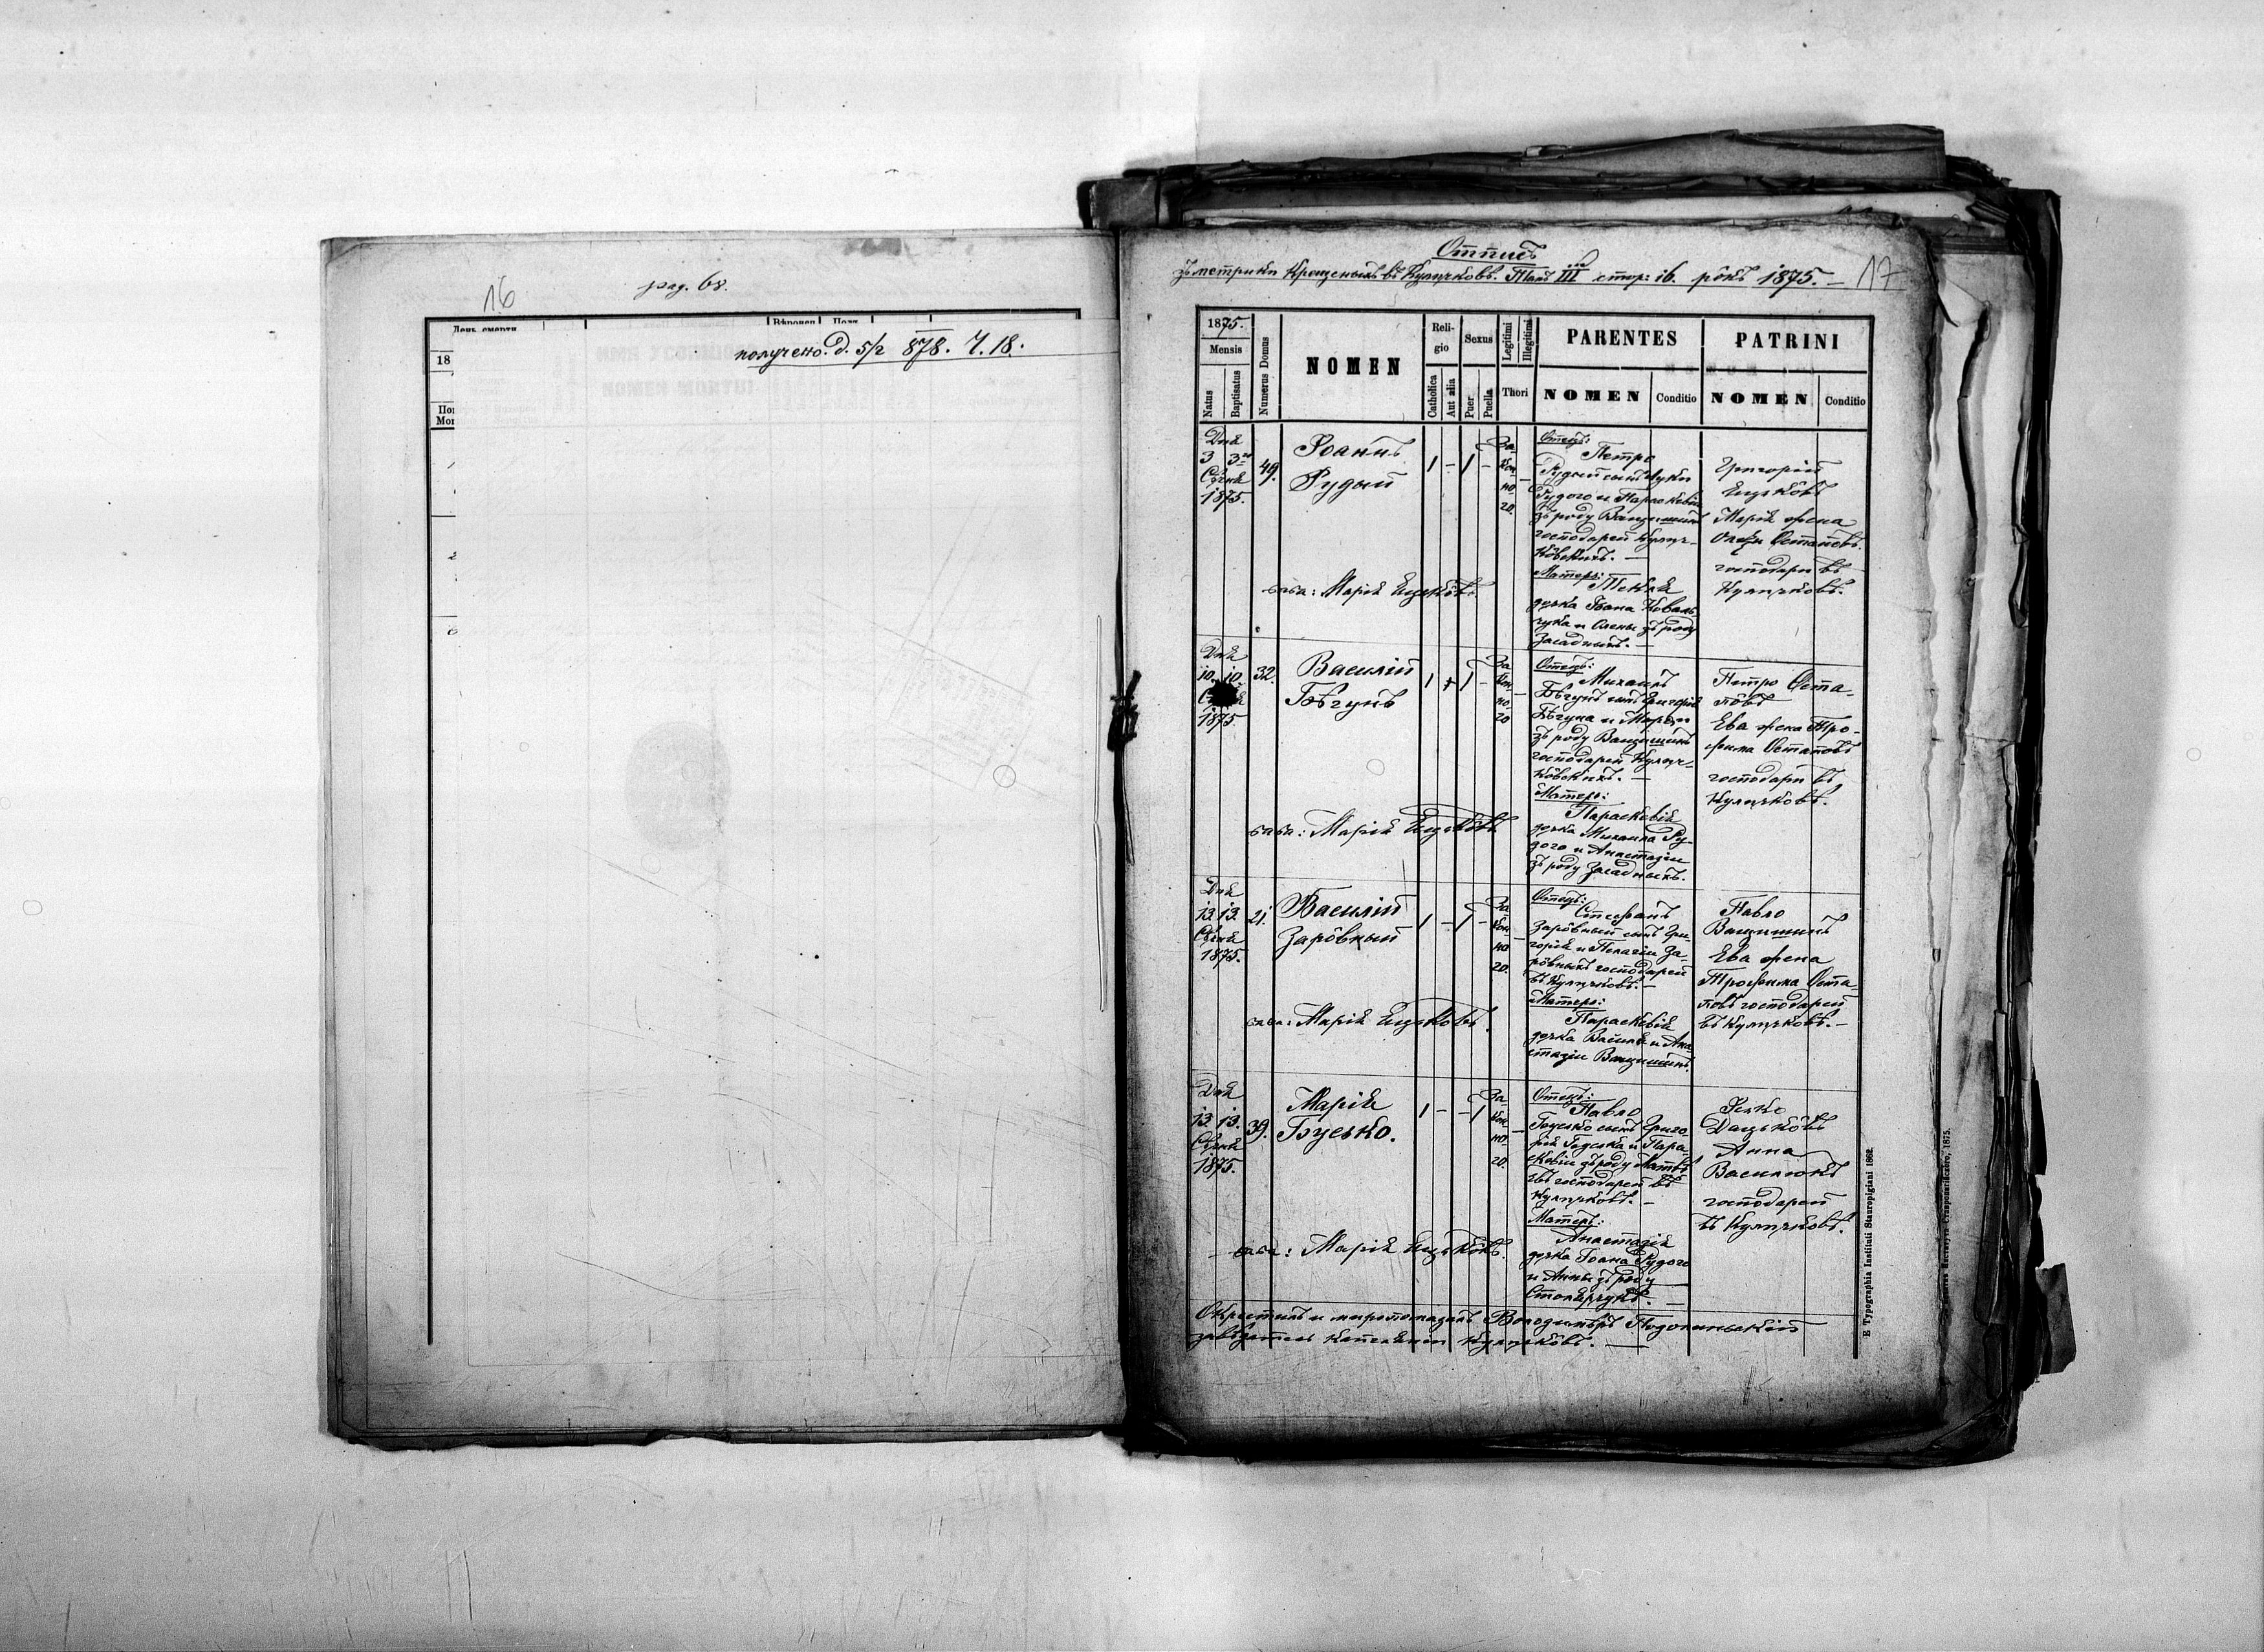 16
рад. 68.
День смерти
Вѣроисп
Полъ
18
получено. д. 5/2 878. Ч. 18.
Отписъ
зъ метрики Крещеныхъ въ Куличковѣ. Томъ III стор: 16. рôкъ 1875. –
17
1875.
Mensis
Natus
Baptisatus
Numerus Domus
NOMEN
Religio
Catholica
Aut alia
Sexus
Puer
Puella
Legitimi
Illegitimi
Thori
PARENTES
NOMEN
Conditio
PATRINI
NOMEN
Conditio
Дня
3 3го
Сѣчня
1875.
49.
Іоаннъ
Рудый
1 – 1 –
За
кон
но
го.
Отецъ:
Петро
Рудый сынъ Луки
Рудого и Параскевіи
зъ роду Ващишинъ
господарей Кулич-
кôвскихъ. –
Матерь:
Текля
дочка Іоана Коваль-
чука и Олены зъ роду
Засадныхъ. –
Григорій
Ецькôвъ
Марія жена
Олексы Остаповъ.
господари въ
Куличковѣ.
баба: Марія Ецькôвъ.
Дня
10. 10.
1875
32.
Василій
Бѣгунъ
За
кон
но
го
Отецъ:
Михаилъ
Бѣгунъ сынъ Григорія
Бѣгуна и Маріи
зъ роду Ващишинъ
господарей Кулич-
кôвскихъ. –
Матерь:
Параскевія
дочка Михаила Ру-
дого и Анастазіи
зъ роду Засадныхъ.
Петро Оста-
пôвъ
Ева жена Тро-
фима Остапôвъ
господари въ
Куличковѣ.
баба: Марія Ецькôвъ
Дня
13. 13.
Сѣчня
1875.
21.
Василій
Зарôвный
1 – 1 –
За
кон
но
го.
Отецъ:
Стефанъ
Зарôвный сынъ Гри-
горія и Пелагіи За-
рôвныхъ господарей
въ Куличковѣ. –
Матерь:
Параскевія
дочка Василя и Ана-
стазіи Ващишинъ.
Павло
Ващишинъ
Ева жена
Трофима Оста-
пôвъ господарей
въ Куличковѣ. –
баба: Марія Ецькôвъ.
Дня
13. 13.
Сѣчня
1875.
39.
Марія
Бусько.
1 – – 1
За-
кон
но
го.
Отецъ:
Павло
Бусько сынъ Григо-
рія Буська и Пара-
скевіи зъ роду
господарей въ
Куличковѣ. –
Матерь:
Анастазія
дочка Іоана Рудого
и Анны зъ роду
Столярчукъ. –
Яцко
Дацькôвъ
Анна
Василюкъ
господарей
въ Куличковѣ.
баба: Марія Ецькôвъ.
Окрестилъ и миропомазалъ Володимѣръ Подолиньскій
завѣдатель капеляніи Куличкôвъ. –
E Typographia Instituti Stauropigiani 1862.